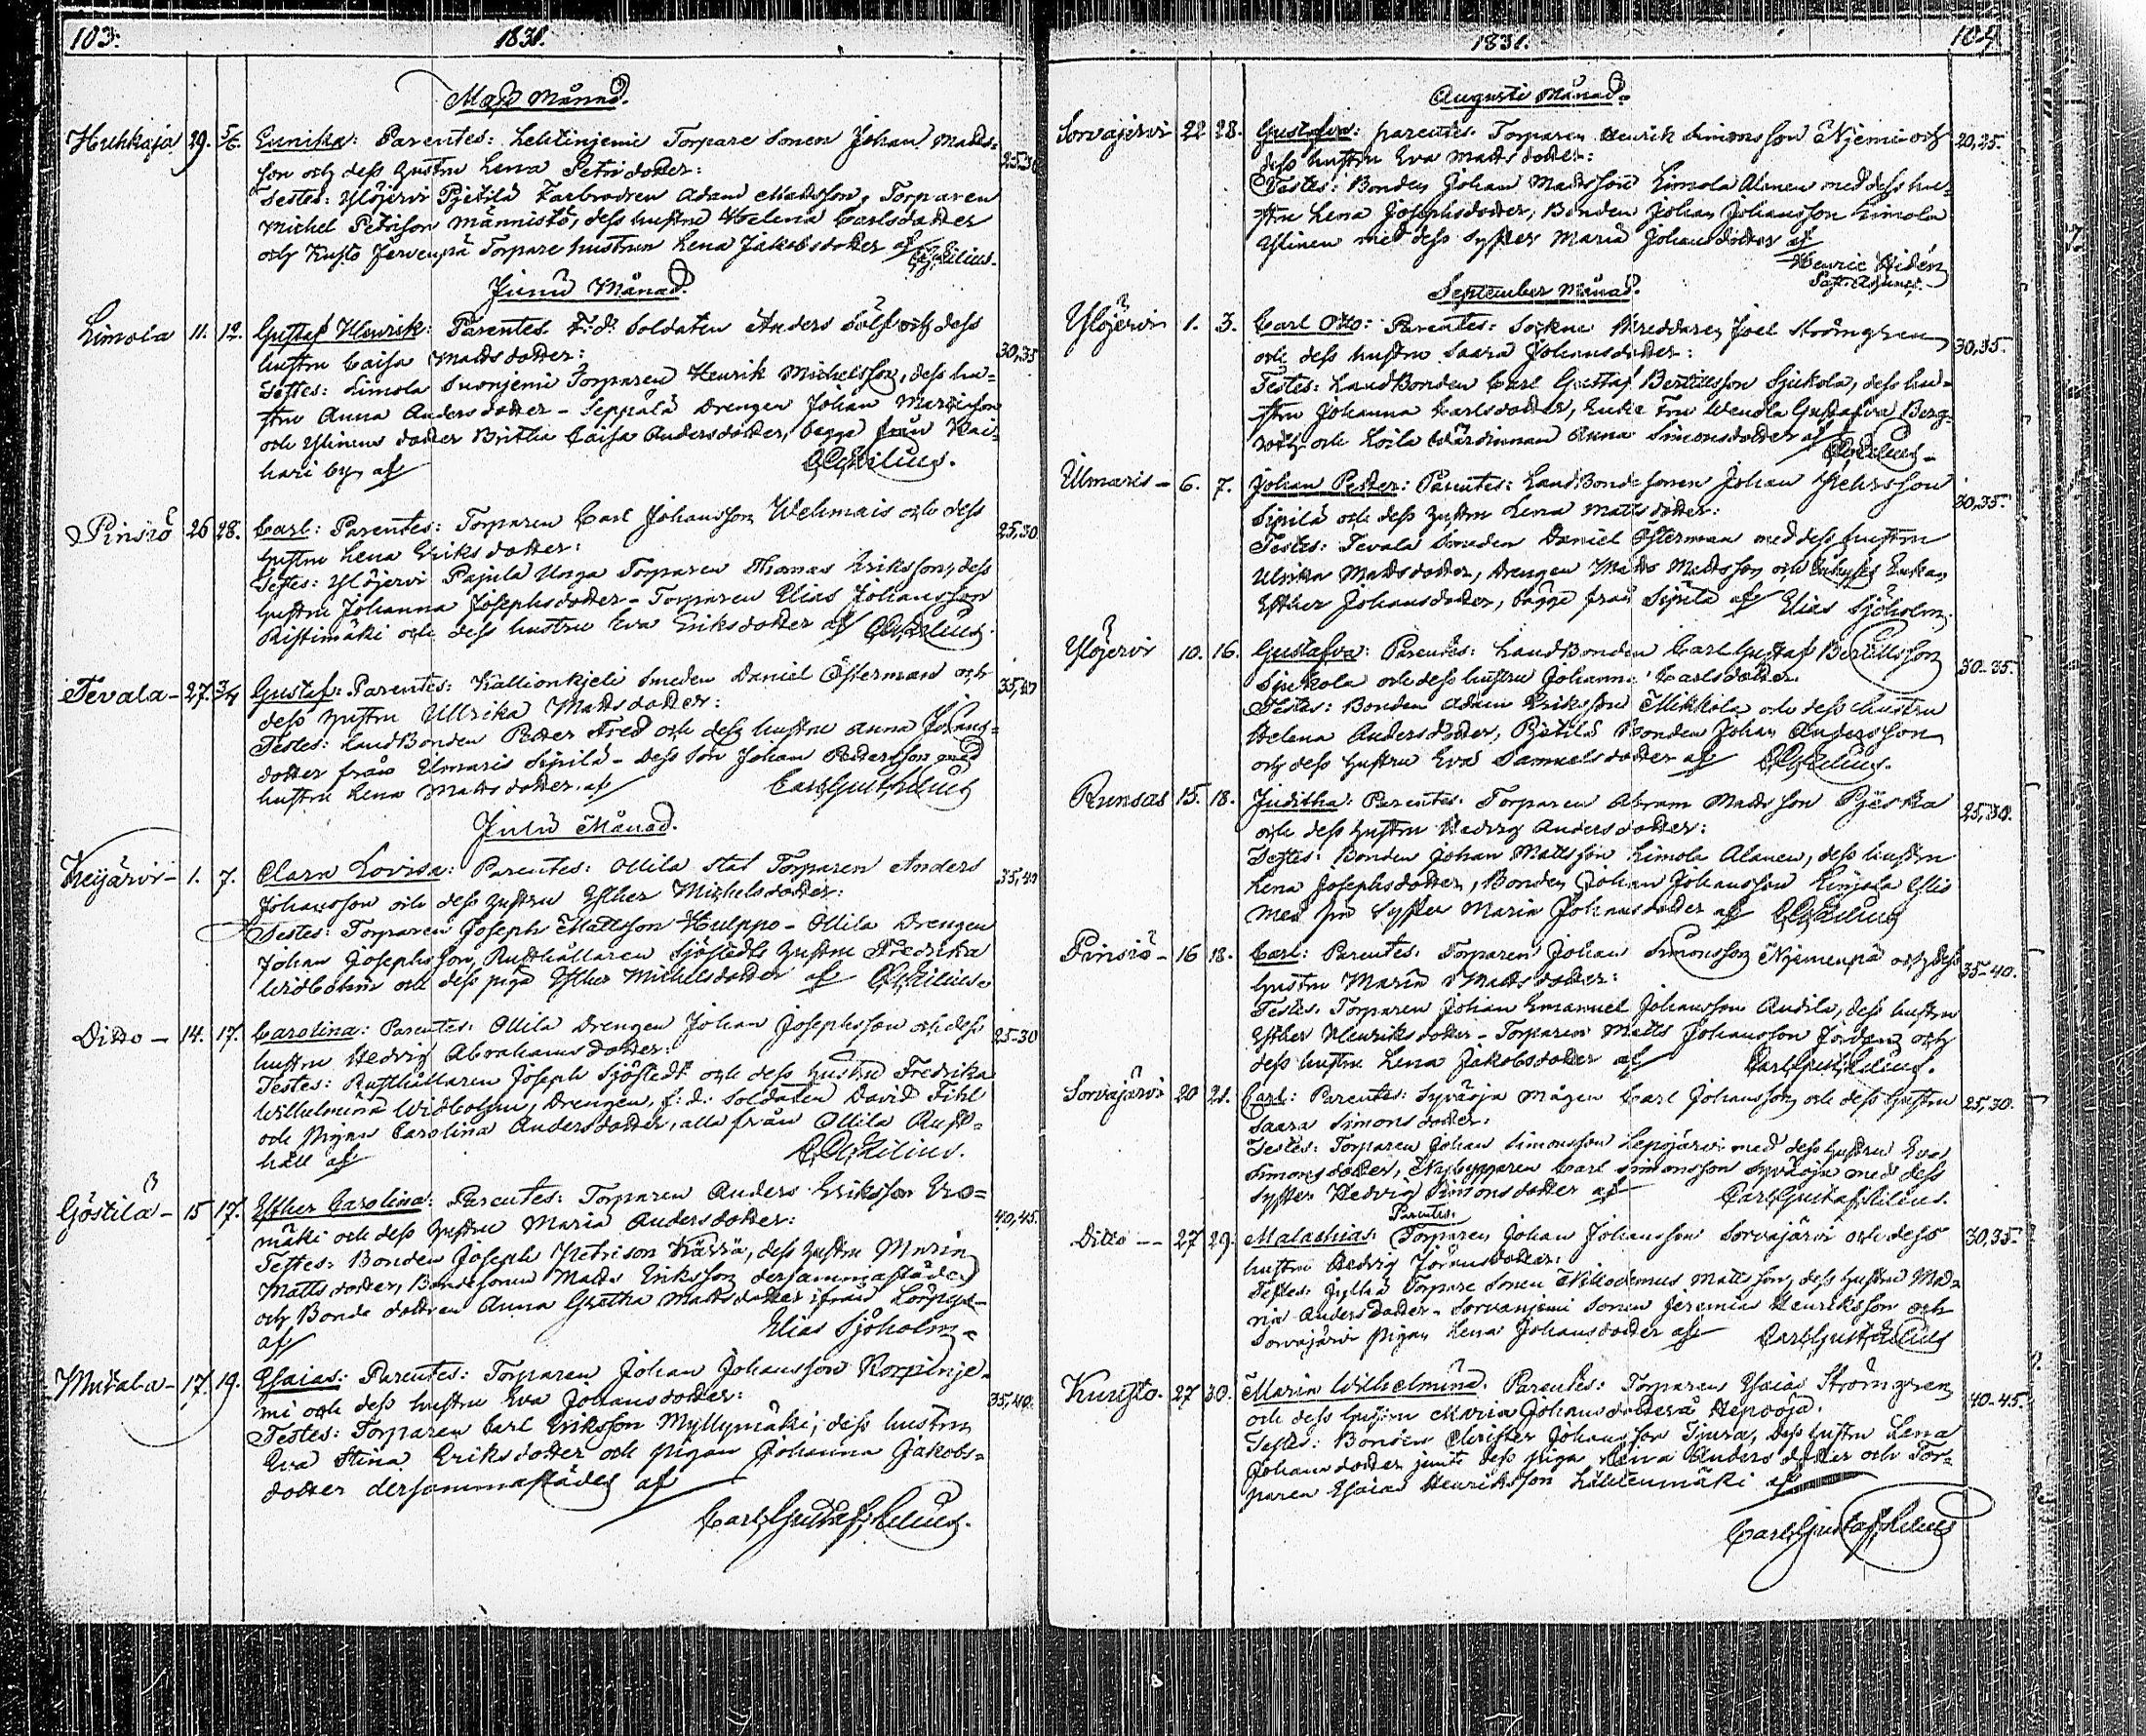 103. 1831.
Maji Månad.
Huhkaja 29. 5/6. Eunika: Parentes: Lehtinjemi Torpare Sonen Johan Matts= 25.30
son och dess hustru Lena Petri dotter:
Testes: Ylöjervi Pjetilä Farbrodren Adam Mattsson, Torparen
Michel Petrison Männistö, dess hustru Helena Carlsdotter
och Kusto Jervenpä Torpare hustrun Lena Jakobsdotter af
Junii Månad.
Limola 11. 12. Gustaf Henrik: Parentes: F: d: Soldaten Anders Sölf och dess
hustru Caisa Mattsdotter: 30,35
Testes: Limola Suonjemi Torparen Henrik Michelsson, dess hu=
stru Anna Andersdotter - Seppälä Drengen Johan
och Ylinens dotter Britha Caisa Andersdotter, bägge från
hari by, af C.G. Ailius.
Pinsiö 26 28. Carl: Parentes: Torparen Carl Johansson Wehmais och dess 25,30
hustru Lena Eriksdotter:
Testes: Ylöjervi Pajula Unga Torparen Thomas Eriksson, dess
hustru Johanna Josephsdotter - Torparen Elias Johansson
Ristimäki och dess hustru Eva Eriksdotter af
Tevala - 27. 3/4 Gustaf: Parentes: Kallionkjeli Smeden Daniel Österman och 35,40
dess hustru Ullrika Mattsdotter:
Testes: LandBonden Petter Fred och dess hustru Anna Johans=
dotter från Ilmaris Sipilä - dess Son Johan Pettersson med
hustru Lena Mattsdotter, af Carl Gust. Ailius
Julii Månad.
Keijärvi - 1. 7. Clara Lovisa: Parentes: Ollila Stat Torparen Anders 35,40
Johansson och dess hustru Esther Michelsdotter:
Testes: Torparen Joseph Mattsson Hulppo - Ollila Drengen
Johan Josephsson, Rusthållaren Sjöstedts hustru Fredrika
Widbohm och dess piga Esther Michelsdotter af C.G. Ailius.
Ditto - 14. 17. Carolina: Parentes: Ollila Drengen Johan Josephsson och dess 25-30
hustru Hedvig Abrahamsdotter:
Testes: Rusthållaren Joseph Sjöstedt och dess hustru Fredrika
Wilhelmina Widbohm, Drengen, f: d: Soldaten David Fihl
och Pigan Carolina Andersdotter, alla från Ollila Rust=
håll af C.G. Ailius.
Göstilä - 15 17. Esther Carolina: Parentes: Torparen Anders Eriksson Uro= 40,45.
mäki och dess hustru Maria Andersdotter:
Testes: Bonden Joseph Petrison Kärrä, dess hustru Maria
Mattsdotter, Bondesonen Matts Eriksson dersammastädes
och Bonde dottren Anna Gretha Mattsdotter ifrån
af Elias Sjöholm.
Mutala - 17. 19. Esaias: Parentes: Torparen Johan Johansson Korpinje=
mi och dess hustru Eva Johansdotter: 35,40.
Testes: Torparen Carl Eriksson Myllymäki, dess hustru
Eva Stina Eriksdotter och pigan Johanna Jakobs=
dotter dersammastädes af
Carl Gustaf Ailius.
1831. 104
Augusti Månad.
Sorvajervi 22 28. Gustafva: parentes: Torparen Henrik Simonsson Njemi och 20,25.
dess hustru Eva Mattsdotter:
Testes: Bonden Johan Mattsson Limola Alanen med dess hu=
stru Lena Josephsdotter, Bonden Johan Johansson Limola
Ylinen med dess Syster Maria Johansdotter af
Henric Hidén
September Månad.
Ylöjervi 1. 3. Carl Otto: Parentes: Sockne Skreddaren Joel Strömgren 30,35.
och dess hustru Saara Johansdotter:
Testes: LandBonden Carl Gustaf Bertilsson Sjukola, dess hu=
stru Johanna Carlsdotter, Enke Fru Wendla Gustafva Berg=
roth och Loila Värdinnan Anna Simonsdotter af
Ilmaris - 6. 7. Johan Petter: Parentes: LandBonde Sonen Johan Pettersson 30,35.
Sipilä och dess hustru Lena Mattsdotter:
Testes: Tevala Smeden Daniel Österman med dess hustru
Ulrika Mattsdotter, Drengen Matts Mattsson och Enkan
Esther Johansdotter, bägge från Sipilä af Elias Sjöholm.
Ylöjervi 10. 16. Gustafva: Parentes: LandBonden Carl Gustaf Bertilsson 30-35.
Sjukola och dess hustru Johanna Carlsdotter.
Testes: Bonden Adam Eriksson Mikkola och dess hustru
Helena Andersdotter, Pjetilä Bonden Johan Andersson
och dess hustru Eva Samuelsdotter af C.G. Ailius.
Runsas 15. 18. Juditha: Parentes: Torparen Abram Mattsson Pjeska 25,30.
och dess hustru Hedvig Andersdotter:
Testes: Bonden Johan Mattsson Limola Alanen, dess hustru
Lena Josephsdotter, Bonden Johan Johansson Limola Ylis
med sin Syster Maria Johansdotter af C.G. Ailius
Pinsiö - 16 18. Carl: Parentes: Torparen Johan Simonsson Njemenpä och dess 35-40.
hustru Maria Mattsdotter:
Testes: Torparen Johan Emanuel Johansson Andila, dess hustru
Esther Henriksdotter - Torparen Matts Johansson och
dess hustru Lena Jakobsdotter af Carl Gust. Ailius.
Sorvajärvi 20 21. Carl: Parentes: Syväoja Mågen Carl Johansson och dess hustru 25,30.
Saara Simonsdotter:
Testes: Torparen Johan Simonsson Lepojärvi med dess hustru Eva
Simonsdotter, Nybyggaren Carl Simonsson Syväoja med dess
Syster Hedvig Simonsdotter af Carl Gustaf Ailius.
Parentes:
Ditto -- 27 29. Malachias: Torparen Johan Johansson Sorvajärvi och dess 30,35.
hustru Hedvig Göransdotter:
Testes: Jylhä Torpare Sonen Nikodemus Mattsson, dess hustru Ma=
ria Andersdotter - Sorvanjemi Sonen Jeremia Henriksson och
Sorvajärvi Pigan Lena Johansdotter af Carl Gust. Ailius
Kuusto - 27 30. Maria Wilhelmina. Parentes: Torparen Esaias Strömgren 40-45.
och dess hustru Maria Johansdotter å Hepooja.
Testes: Bonden Christer Johansson Tjura, dess hustru Lena
Johansdotter jemte dess piga Lena Andersdotter och Tor=
paren Esaias Henriksson Lähtenmäki af
Carl Gustaf Ailius